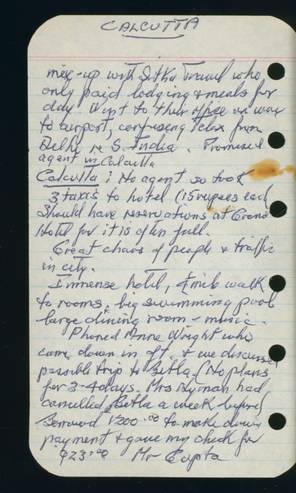 CALCUTTA
mix-up with Sitka Travel who
only paid lodging & meals for
day. Went to their office on way
to airport, confusing Telex from
Delhi re S. India. Promised
agent in Calcutta
Calcutta: No agent so took
3 taxis to hotel (15 rupees each
Should have reservations at Grand
Hotel for it is often full.
Great chaos of people & traffic
in city.
Immense hotel, ¼ mile walk
to rooms, big swimming pool
large dining room - music.
Phoned Anne Wright who
came down in aft, & we discussed
possible trip to Betla. No plans
for 3-4 days. Mrs Nyman had
cancelled Betla a week before
Borrowed 1200.00 to make down
payment & gave my check for
$ Mr Gupta